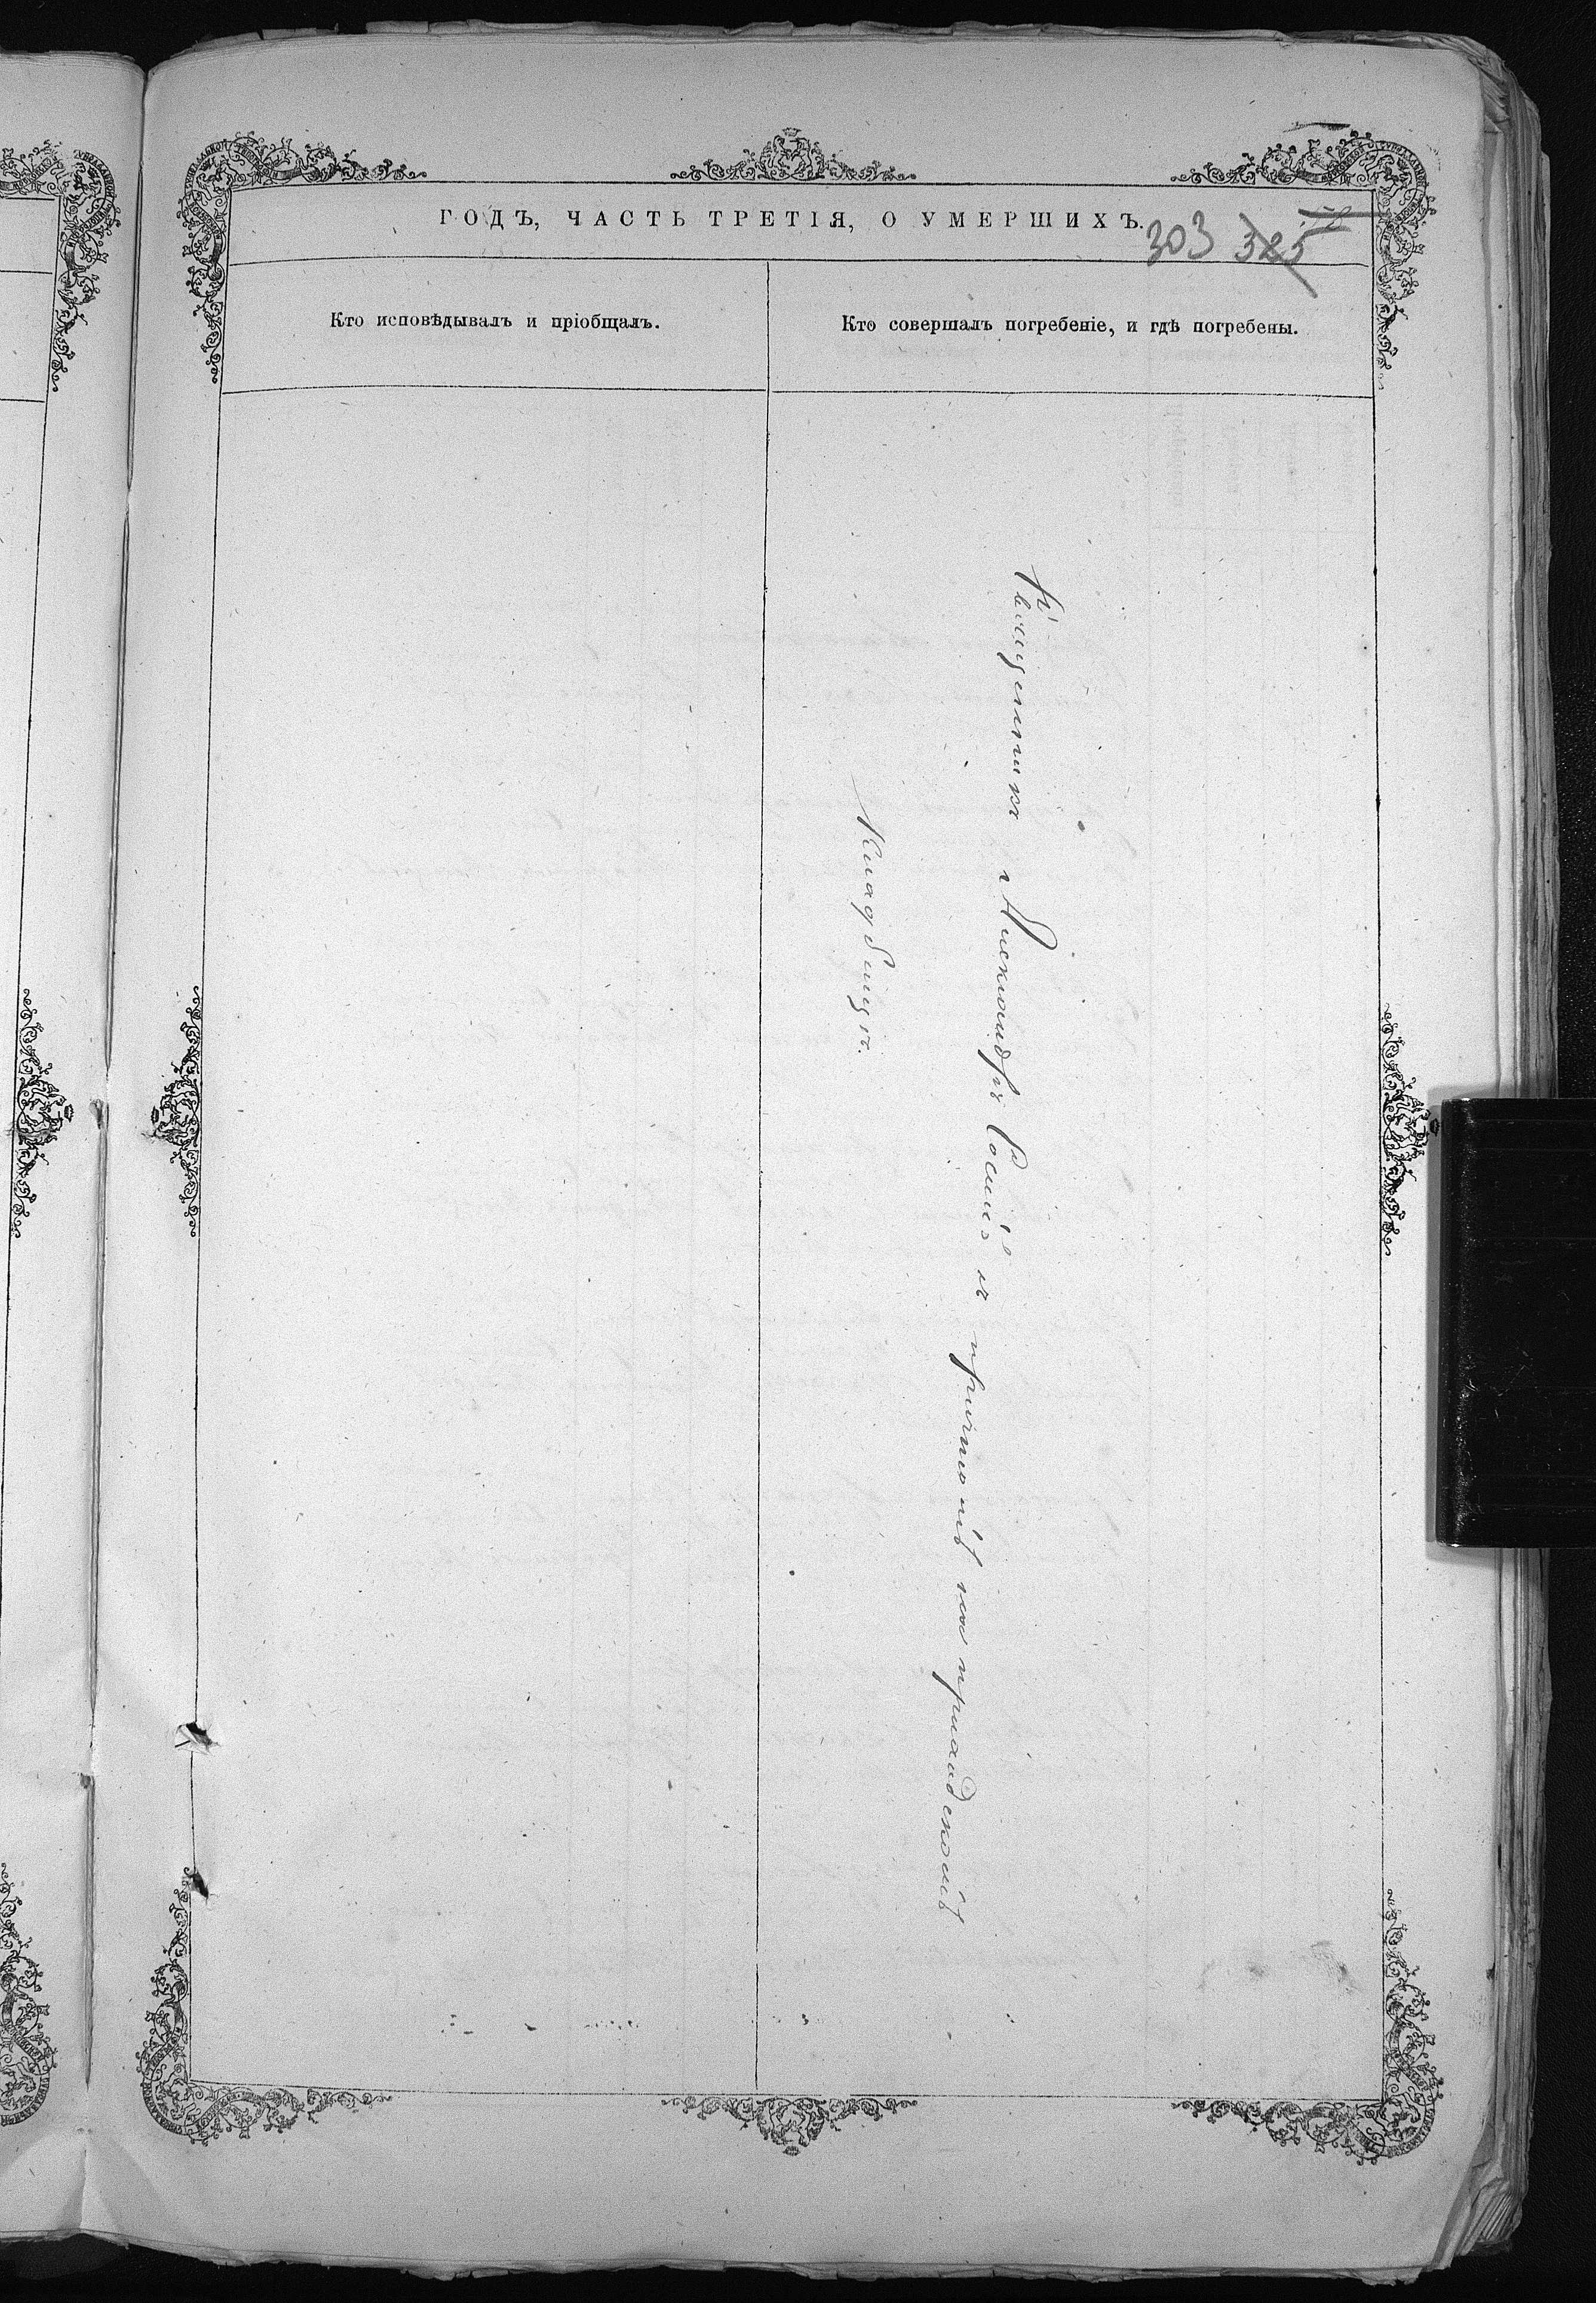 ГОДЪ, ЧАСТЬ ТРЕТІЯ, О УМЕРШИХЪ.
303 325
Кто исповѣдывалъ и пріобщалъ.
Кто совершалъ погребеніе, и гдѣ погребены.
Священникъ Александръ съ причтомъ на гражданскомъ
Кладбищѣ.